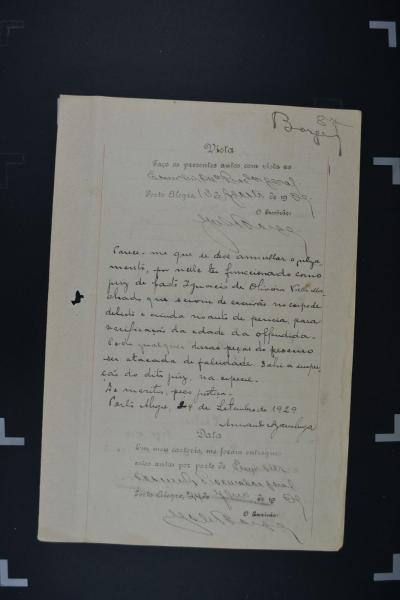 87
Borges
Vista
Faço os presentes autos com vista ao
Porto Alegre, 13 de Agosto de 1929
O Escrivão:
Parece-me que se deve annullar o julga-
mento, por nelle ter funccionado como
juiz de facto Ignacio de Oliveira Valle Ma-
chado que serviu de escrivão no corpo de
delicto e ainda no auto de pericia, para
verificação da edade da offendida.
Pode qualquer dessas peças do processo
ser atacada de falsidade. Dahi a suspei-
ção do dito juiz, na especie.
De meritis, peço justiça.
Porto Alegre, 24 de Setembro de 1929
Data
Em meu cartorio, me foram entregues
estes autos por parte do
Porto Alegre, 24 de 1929
O Escrivão: